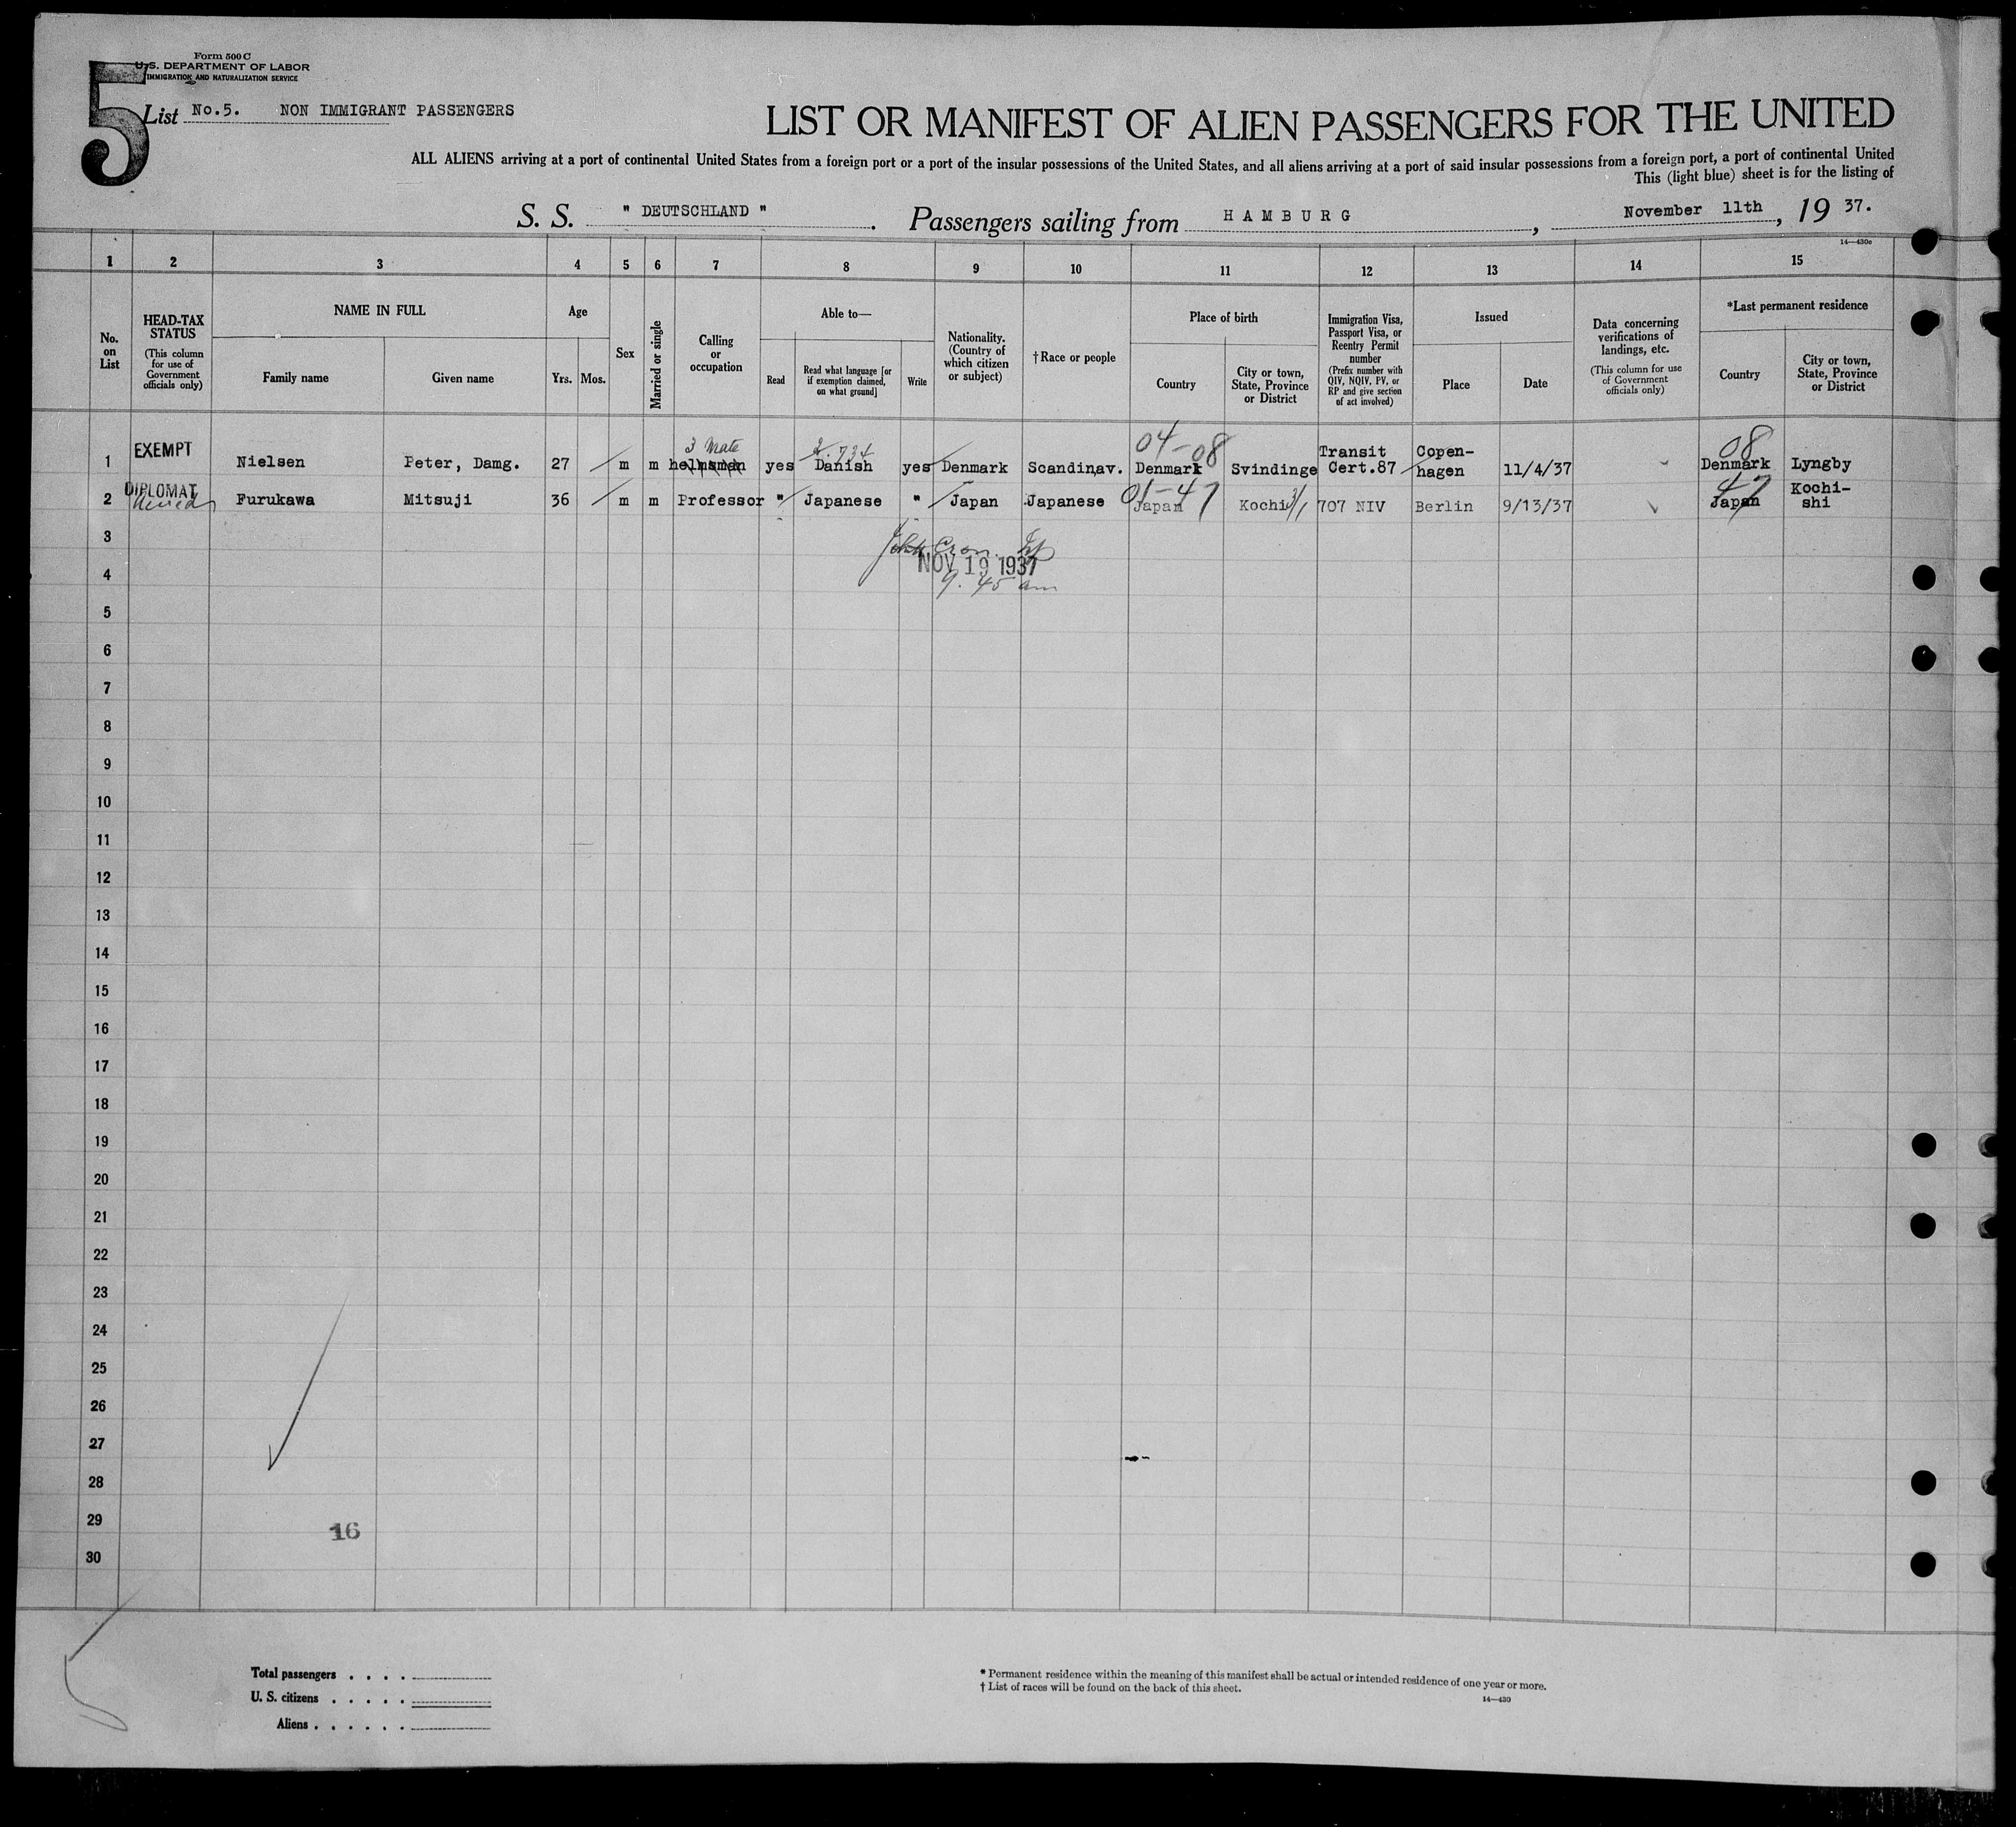 Form 500 C
U. S. DEPARTMENT OF LABOR
IMMIGRATION AND NATURALIZATION SERVICE
5
List No.5. NON IMMIGRANT PASSENGERS
LIST OR MANIFEST OF ALIEN PASSENGERS FOR THE UNITED
ALL ALIENS arriving at a port of continental United States from a foreign port or a port of the insular possessions of the United States, and all aliens arriving at a port of said insular possessions from a foreign port, a port of continental United
This (light blue) sheet is for the listing of
S. S. " DEUTSCHLAND ". Passengers sailing from H A M B U R G, November 11th, 19 37.
14—430c
1 2 3 4 5 6 7 8 9 10 11 12 13 14 15
No. on List
HEAD-TAX STATUS
(This column for use of Government officials only)
NAME IN FULL
Family name
Given name
Age
Yrs. Mos.
Sex
Married or single
Calling or occupation
Able to—
Read
Read what language [or if exemption claimed, on what ground]
Write
Nationality. (Country of which citizen or subject)
†Race or people
Place of birth
Country
City or town, State, Province or District
Immigration Visa, Passport Visa, or Reentry Permit number
(Prefix number with QIV, NQIV, PV, or RP and give section of act involved)
Issued
Place
Date
Data concerning verifications of landings, etc.
(This column for use of Government officials only)
*Last permanent residence
Country
City or town, State, Province or District
3 Mate 2.734 04-08 08
1 EXEMPT Nielsen Peter, Damg. 27 m m helmsman yes Danish yes Denmark Scandinav. Denmark Svindinge Transit Cert.87 Copen-hagen 11/4/37 Denmark Lyngby
01-47 47
2 DIPLOMAT Furukawa Mitsuji 36 m m Professor " Japanese " Japan Japanese Japan Kochi 707 NIV Berlin 9/13/37 Japan Kochi-shi
3
NOV 19 1937
4
9.45 am
5
6
7
8
9
10
11
12
13
14
15
16
17
18
19
20
21
22
23
24
25
26
27
28
29
16
30
Total passengers . . . .
U. S. citizens . . . . .
Aliens . . . . . .
* Permanent residence within the meaning of this manifest shall be actual or intended residence of one year or more.
† List of races will be found on the back of this sheet.
14—430